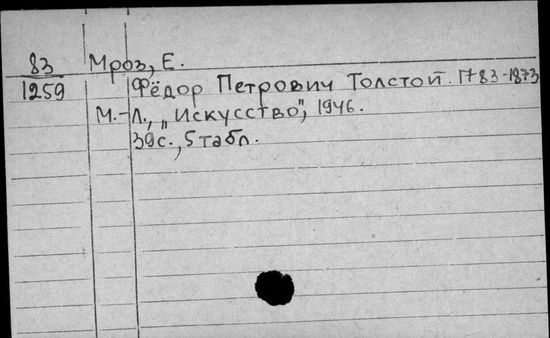 83 Мроз, Е.
1259 Фёдор Петрович Толстой. 1783-1873
М.-Л., „Искусство", 1946.
39с., 5 табл.